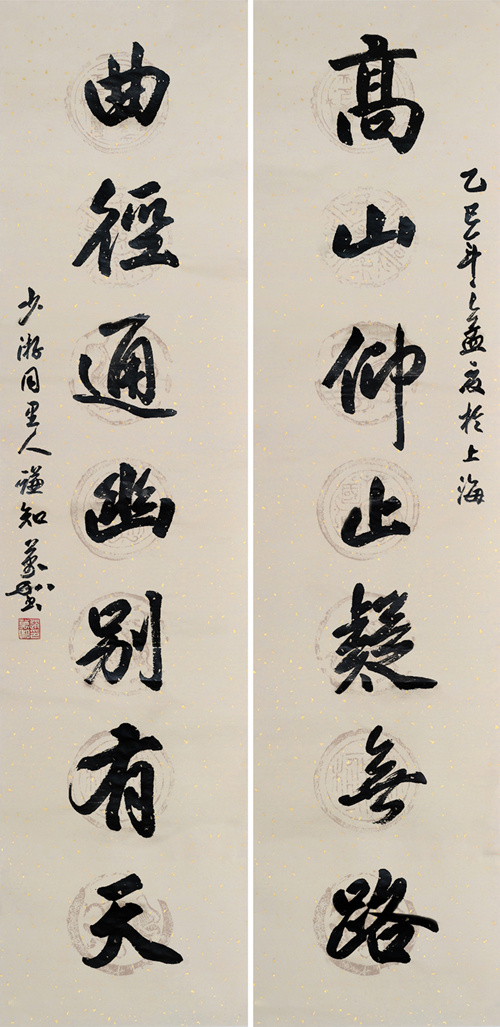 乙巳年之孟夏於上海
髙山仰止疑無路
曲徑通幽别有天
少游同里人謙知